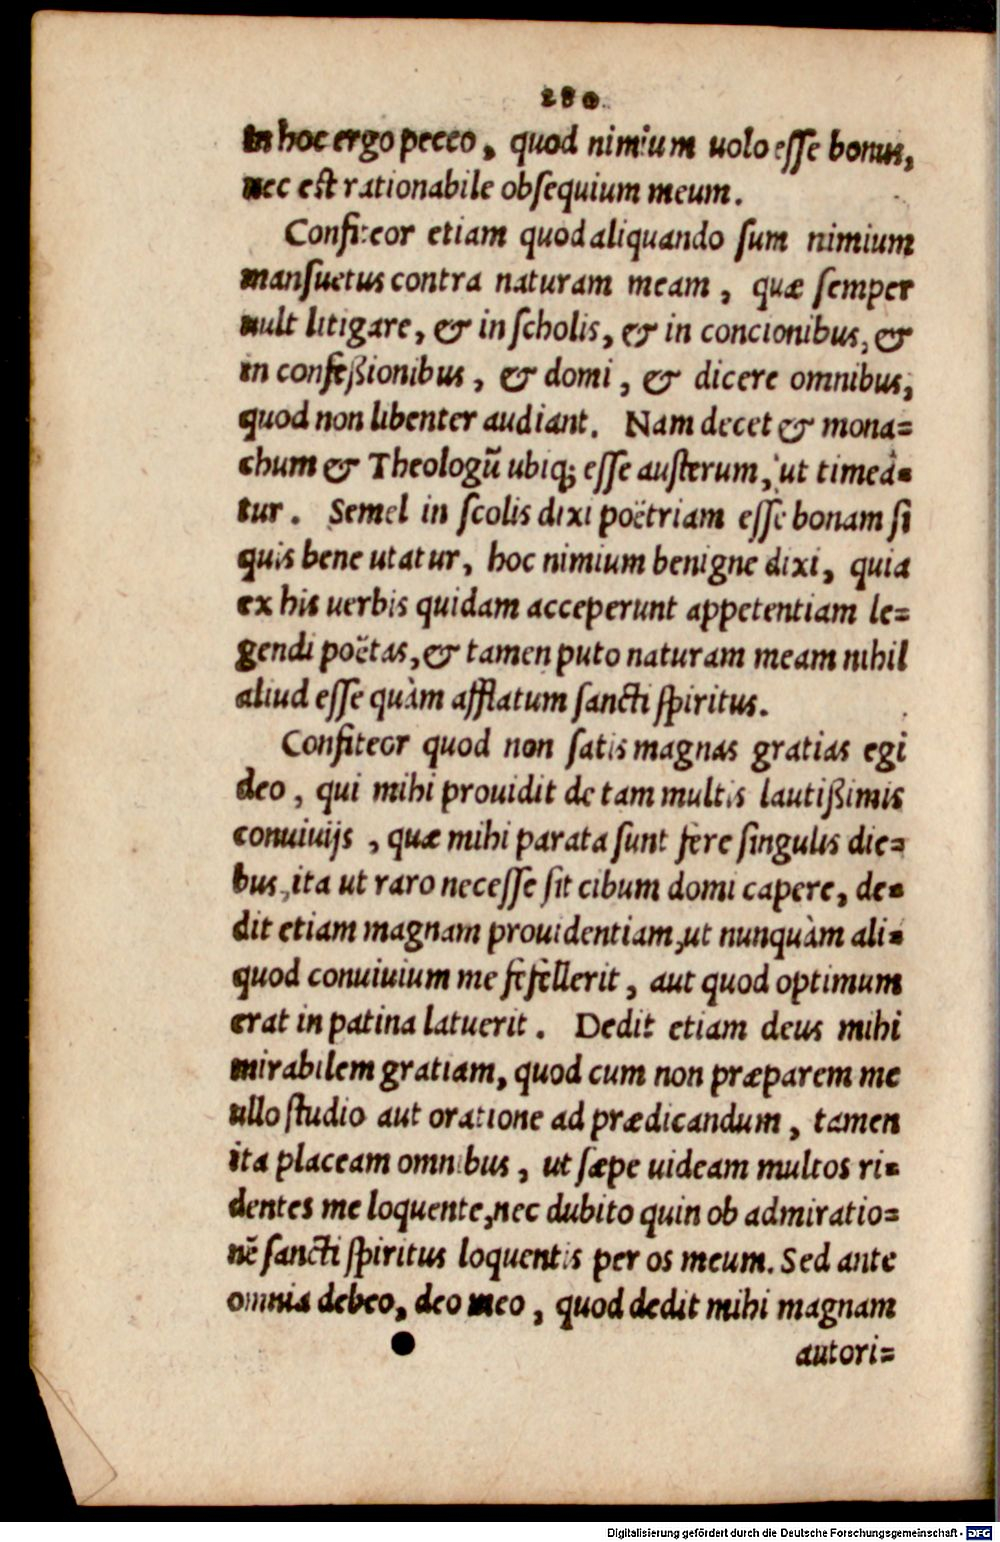 280.
in hoc ergo pecco, quod nimium uolo esse bonus,
nec est rationabile obsequium meum.
Confiteor etiam quod aliquando sum nimium
mansuetus contra naturam meam, quæ semper
uult litigare, & in scholis, & in concionibus, &
in confeßionibus, & domi, & dicere omnibus,
quod non libenter audiant. Nam decet & mona=
chum & Theologũ ubiq; esse austerum, ut timeã=
tur. Semel in scolis dixi poëtriam esse bonam si
quis bene utatur, hoc nimium benigne dixi, quia
ex his uerbis quidam acceperunt appetentiam le=
gendi poëtas, & tamen puto naturam meam nihil
aliud esse quàm afflatum sancti spiritus.
Confiteor quod non satis magnas gratias egi
deo, qui mihi prouidit de tam multis lautißimis
conuiuijs, quæ mihi parata sunt fere singulis die=
bus, ita ut raro necesse sit cibum domi capere, de=
dit etiam magnam prouidentiam, ut nunquàm ali=
quod conuiuium me fefellerit, aut quod optimum
erat in patina latuerit. Dedit etiam deus mihi
mirabilem gratiam, quod cum non præparem me
ullo studio aut oratione ad prædicandum, tamen
ita placeam omnibus, ut sæpe uideam multos ri=
dentes me loquente, nec dubito quin ob admiratio=
nẽ sancti spiritus loquentis per os meum. Sed ante
omnia debeo, deo meo, quod dedit mihi magnam
autori=
Digitalisierung gefördert durch die Deutsche Forschungsgemeinschaft - DFG